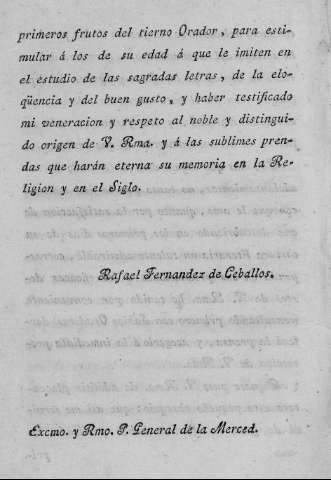 primeros frutos del tierno Orador, para esti-
mular á los de su edad á que le imiten en
el estudio de las sagradas letras, de la elo-
qüencia y del buen gusto, y haber testificado
mi veneracion y respeto al noble y distingui-
do origen de V. Rma. y á las sublimes pren-
das que harán eterna su memoria en la Re-
ligion y en el Siglo.
Rafael Fernandez de Ceballos.
Excmo. y Rmo. P. General de la Merced.